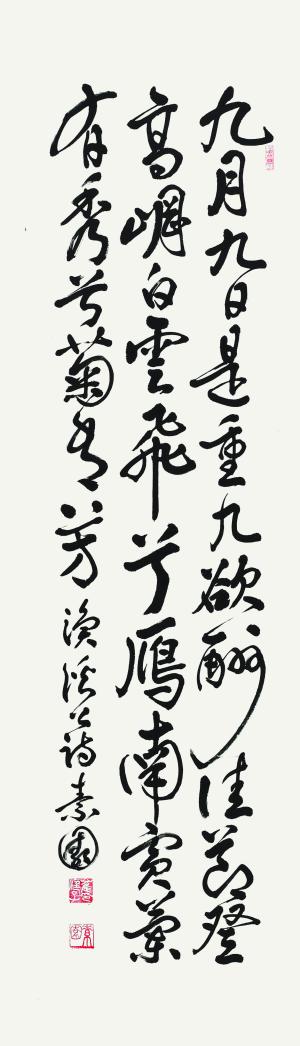 九月九日是重九欲酬佳節登
高崗白雲飛兮鴈南賓蘭
有秀兮菊有芳 漁溪公詩 素園